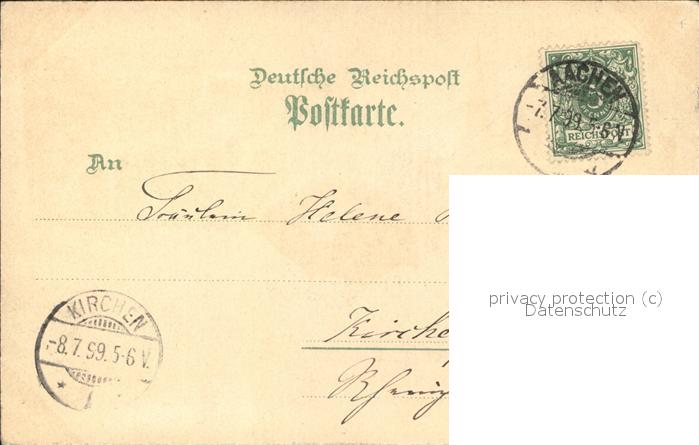 Deutsche Reichspost
Postkarte.
An
AACHEN
7.7.99. 5-6 V.
REICHSPOST
Fräulein Helene
privacy protection (c)
Datenschutz
KIRCHEN
-8.7.99. 5-6 V.
Kirche